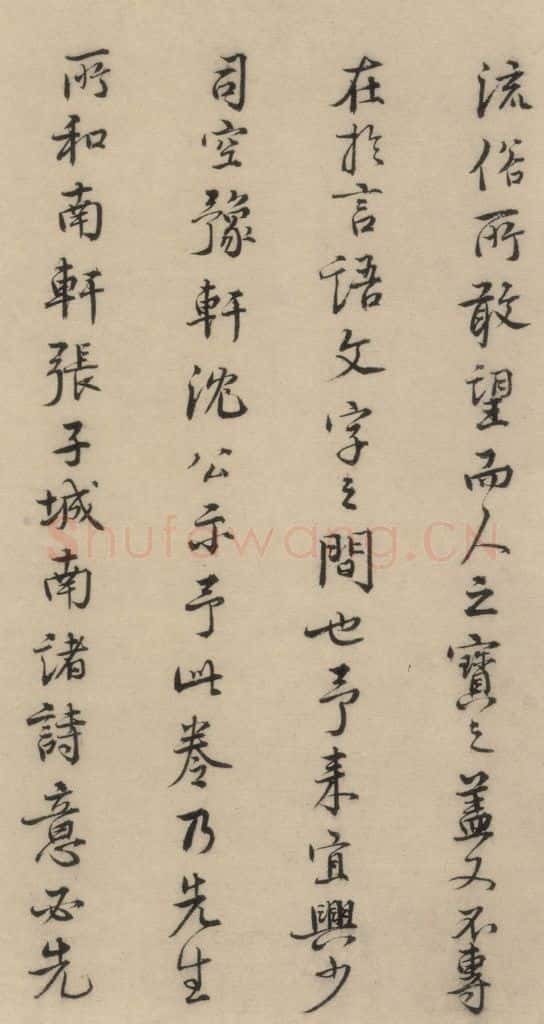 流俗所敢望而人之寳之盖又不専
在於言語文字之間也予来宜興少
司空豫軒沈公示予此卷乃先生
所和南軒張子城南諸詩意必先
shufawang.CN